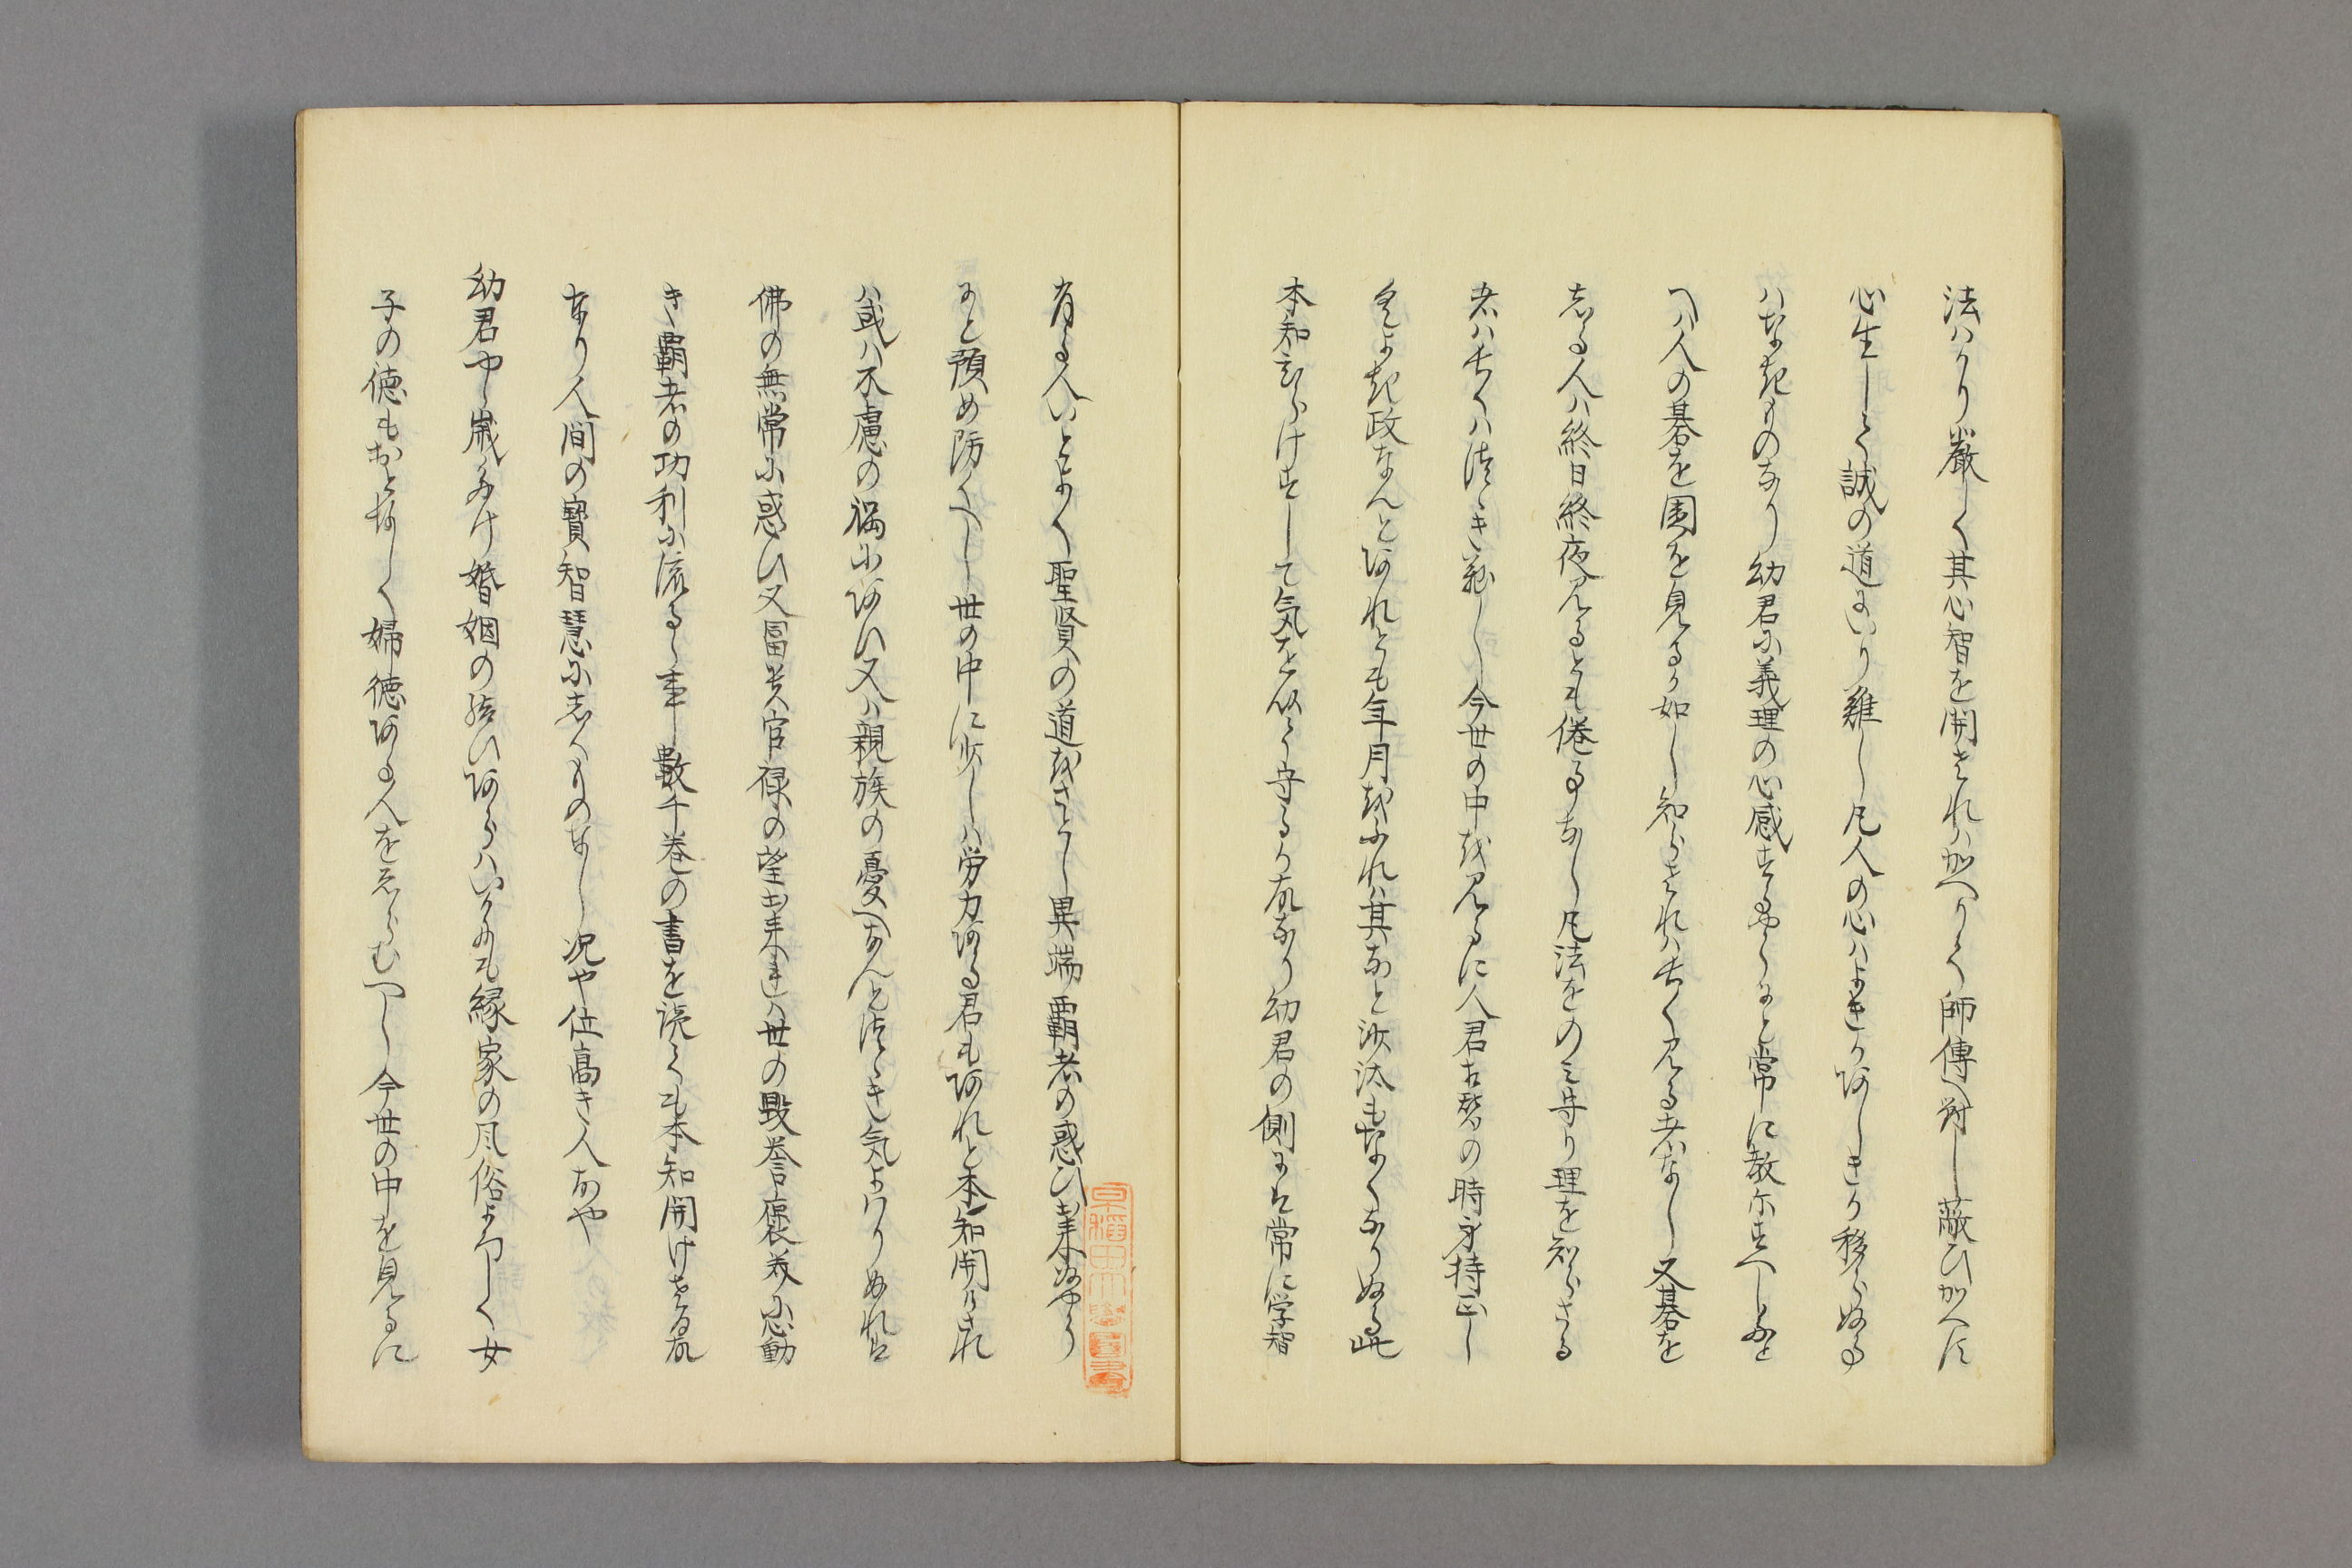 法ハかり厳しく其心智を開されハかへりて師傳へ対し蔽ひかへす
心生して誠の道にいり難し凡人の心ハよきかあしきか移らぬ事
ハなきものなり幼君に義理の心感するやうにと常に教示すへしたと
へハ人の碁を囲を見るか如し知らされハ長く見る者なし又碁を
しる人ハ終日終夜見るとも倦事なし凡法をのミ守り理を知らさる
者ハ長くハつゝき難し今世の中を見るに人君古賢の時身持正し
くよき政なんとあれとも年月をふれハ其なと沙汰もなくなりぬる此
本知ひらけすして気を以て守るか故なり幼君の側には常に学智
有る人いとよく聖賢の道をさとし異端覇者の惑ひ来ぬやう
にと預め防くへし世の中に少しハ労力ある君もあれと本知開けされ
ハ或ハ不慮の禍にあひ又ハ親族の憂へなんとつゝき気よけりぬれは
佛の無常に惑ひ又冨貴官禄の望出来ぬれハ世の毀誉褒美に心動
き覇者の功利に流るゝ事し數千巻の書を読ても本知開けさる故
なり人間の寳智慧にしくものなし况や位髙き人なや
幼君やゝ歳みけ婚姻の結ひあらハいかにも縁家の風俗よろしく女
子の徳もおとなしく婦徳ある人をえらむへし今世の中を見るに
早稲田大學圖書